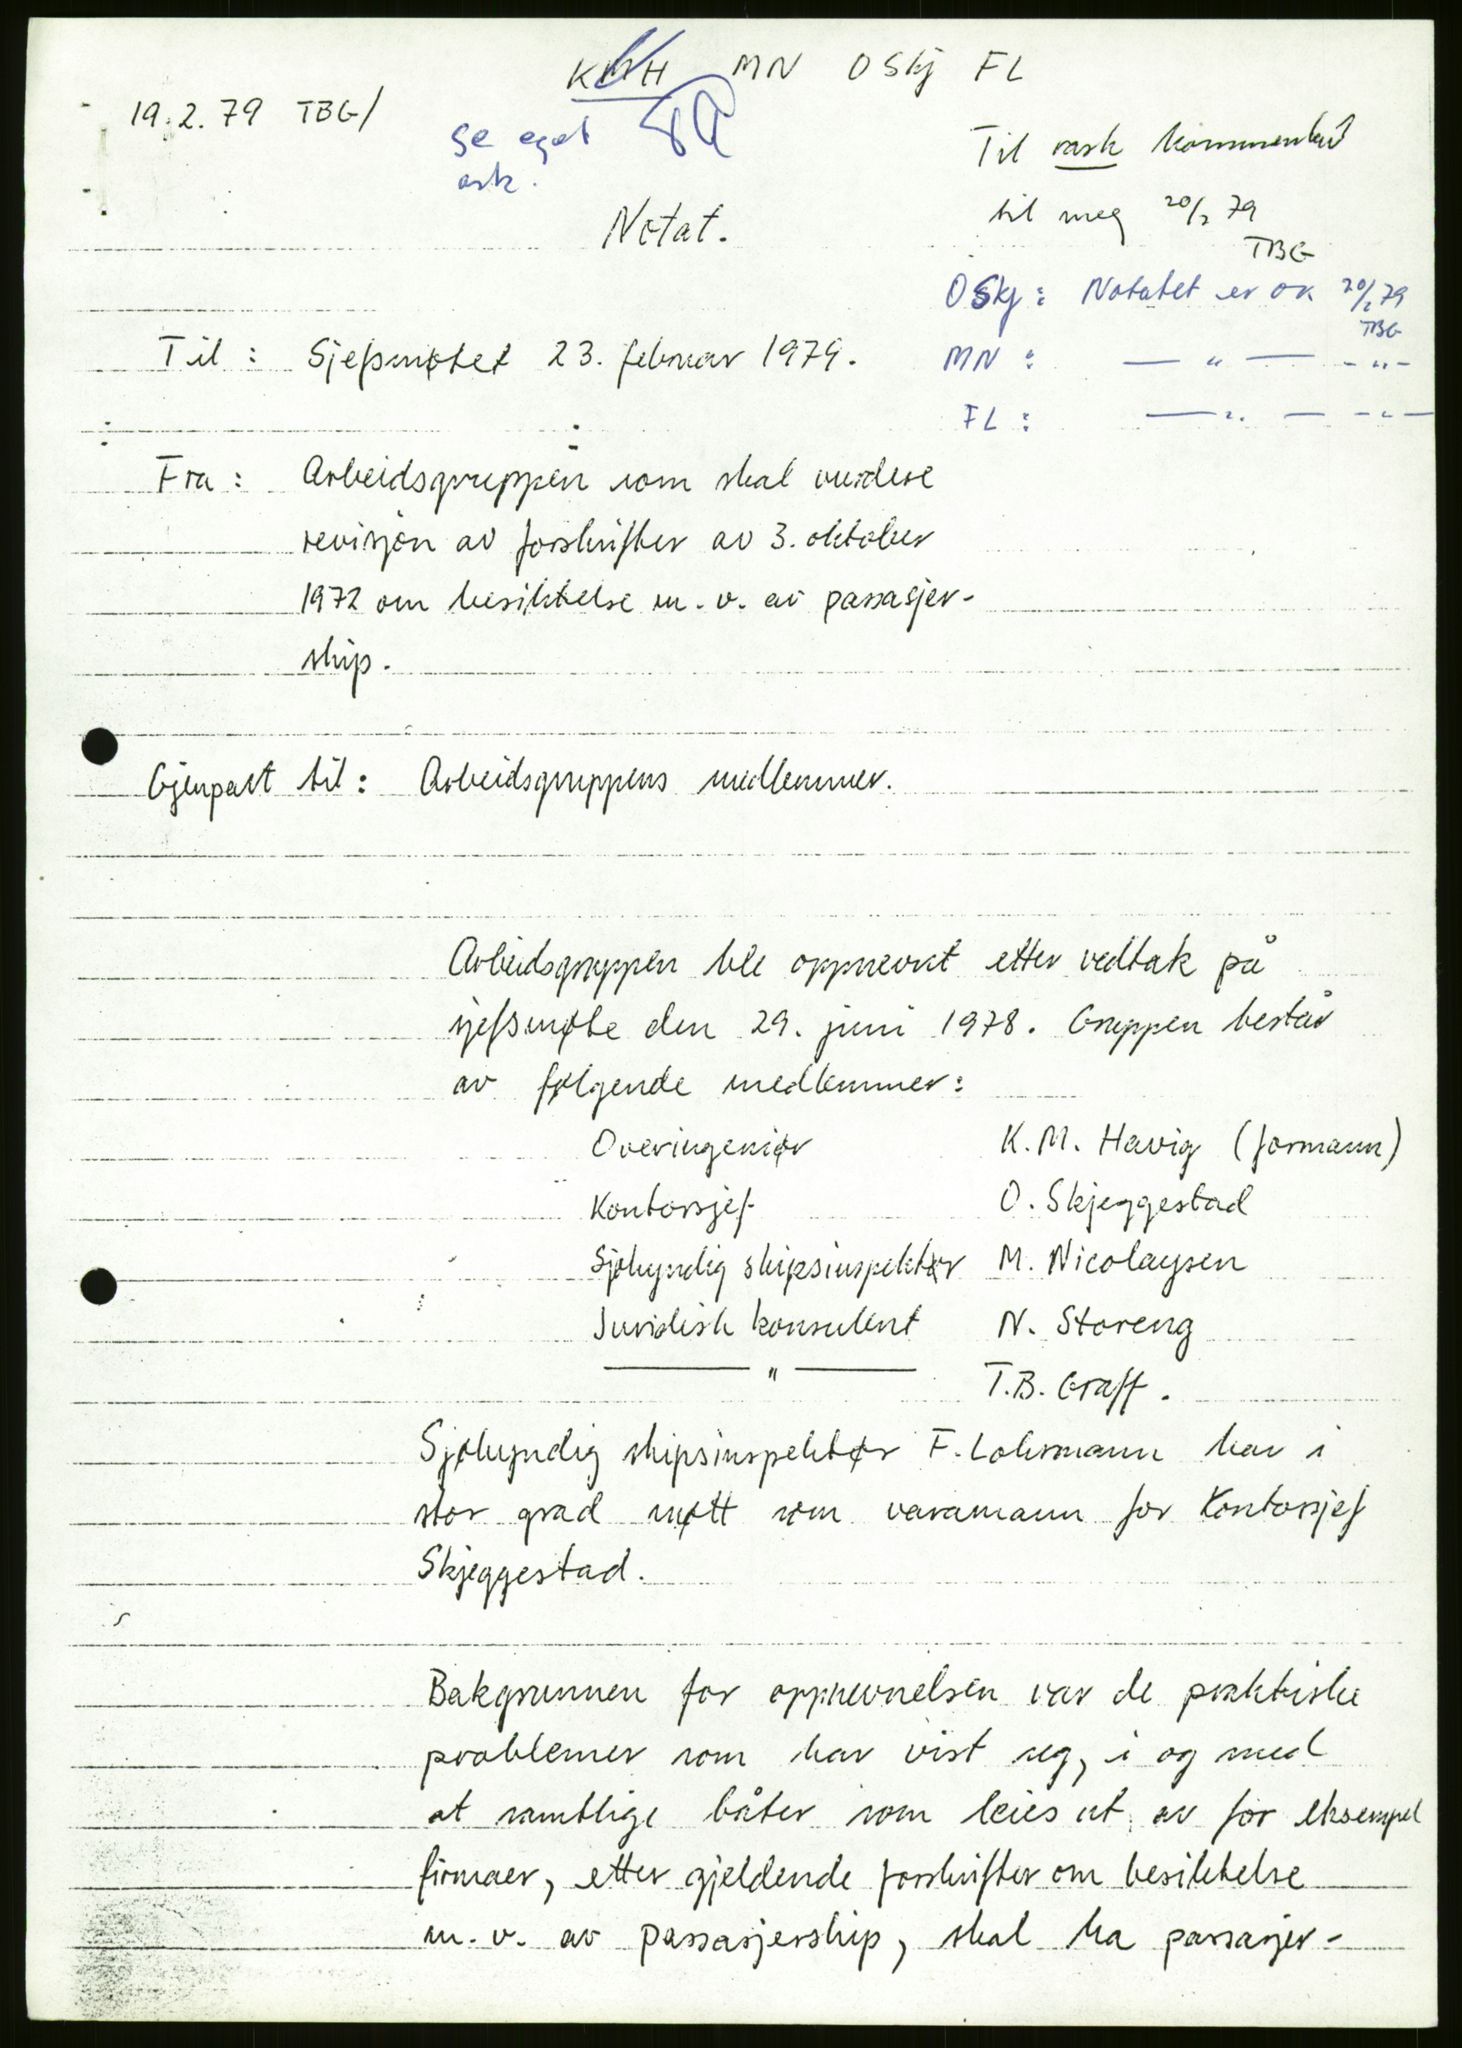 KMH MN OSkj FL
19.2.79 TBG/
Se eget
ark.
Til rask kommentar
til meg 20/2 79
TBG
Notat.
OSkj: Notatet er OK 20/2 79
TBG
Til: Sjefsmøtet 23. februar 1979.
MN: — " — - " -
FL: — " — - " -
Fra: Arbeidsgruppen som skal vurdere
revisjon av forskrifter av 3. oktober
1972 om besiktelse m.v. av passasjer-
skip.
Gjenpart til: Arbeidsgruppens medlemmer.
Arbeidsgruppen ble oppnevnt etter vedtak på
sjefsmøte den 29. juni 1978. Gruppen består
av følgende medlemmer:
Overingeniør K.M. Havig (formann)
Kontorsjef O. Skjeggestad
Sjøkyndig skipsinspektør M. Nicolaysen
Juridisk konsulent N. Storeng
— " — T.B. Graff.
Sjøkyndig skipsinspektør F. Lohrmann har i
stor grad møtt som varamann for Kontorsjef
Skjeggestad.
Bakgrunnen for oppnevnelsen var de praktiske
problemer som har vist seg, i og med
at samtlige båter som leies ut av for eksempel
firmaer, etter gjeldende forskrifter om besiktelse
m.v. av passasjerskip, skal ha passasjer-